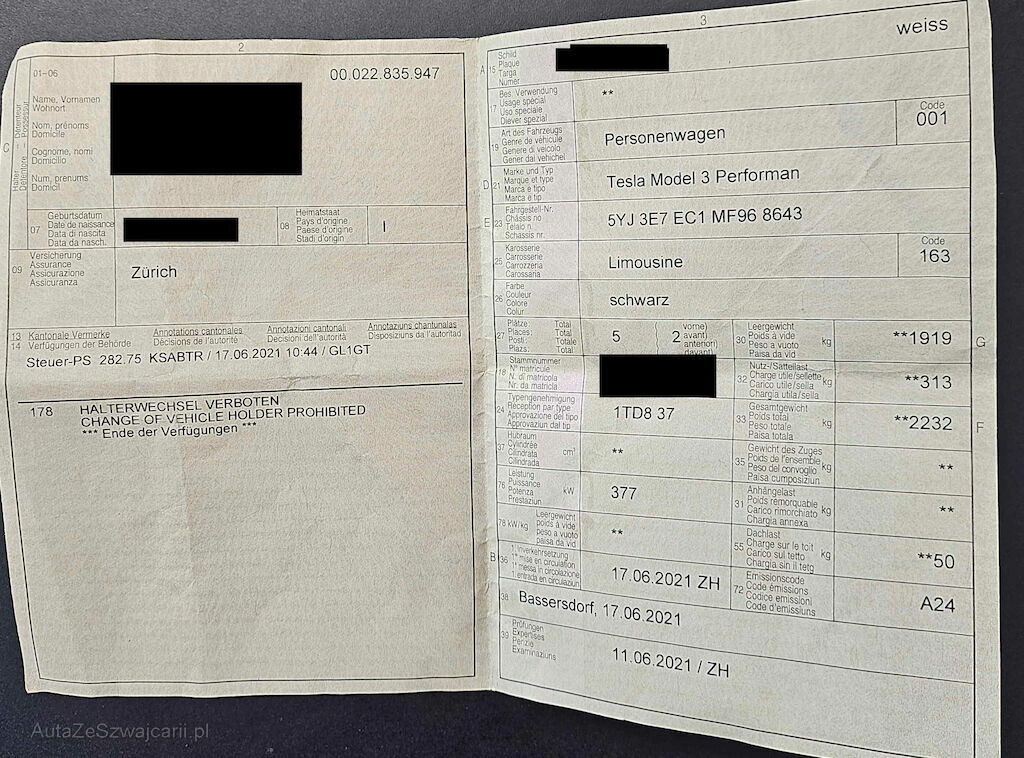 2
01-06
00.022.835.947
C
Halter – Détenteur
Detentore – Possessur
Name, Vornamen
Wohnort
Nom, prénoms
Domicile
Cognome, nomi
Domicilio
Num, prenums
Domicil
07
Geburtsdatum
Date de naissance
Data di nascita
Data da nasch.
08
Heimatstaat
Pays d'origine
Paese d'origine
Stadi d'origin
I
09
Versicherung
Assurance
Assicurazione
Assicuranza
Zürich
13 Kantonale Vermerke Annotations cantonales Annotazioni cantonali Annotaziuns chantunalas
14 Verfügungen der Behörde Décisions de l'autorité Decisioni dell'autorità Disposiziuns da l'autoritad
Steuer-PS 282.75 KSABTR / 17.06.2021 10:44 / GL1GT
178 HALTERWECHSEL VERBOTEN
CHANGE OF VEHICLE HOLDER PROHIBITED
*** Ende der Verfügungen ***
3
weiss
A 15
Schild
Plaque
Targa
Numer
17
Bes. Verwendung
Usage spécial
Uso speciale
Diever spezial
**
19
Art des Fahrzeugs
Genre de véhicule
Genere di veicolo
Gener dal vehichel
Personenwagen
Code
001
D 21
Marke und Typ
Marque et type
Marca e tipo
Marca e tip
Tesla Model 3 Performan
E 23
Fahrgestell-Nr.
Châssis no
Telaio n.
Schassis nr.
5YJ 3E7 EC1 MF96 8643
25
Karosserie
Carrosserie
Carrozzeria
Carossaria
Limousine
Code
163
26
Farbe
Couleur
Colore
Colur
schwarz
27
Plätze: Total
Places: Total
Posti: Totale
Plazs: Total
5
2
vorne)
avant)
anteriori)
davant)
30
Leergewicht
Poids à vide
Peso a vuoto
Paisa da vid
kg
**1919
G
18
Stammnummer
N° matricule
N. di matricola
Nr. da matricla
32
Nutz-/Sattellast
Charge utile/sellette
Carico utile/sella
Chargia utila/sella
kg
**313
24
Typengenehmigung
Réception par type
Approvazione del tipo
Approvaziun dal tip
1TD8 37
33
Gesamtgewicht
Poids total
Peso totale
Paisa totala
kg
**2232
F
37
Hubraum
Cylindrée
Cilindrata
Cilindrada
cm³
**
35
Gewicht des Zuges
Poids de l'ensemble
Peso del convoglio
Paisa cumposiziun
kg
**
76
Leistung
Puissance
Potenza
Prestaziun
kW
377
31
Anhängelast
Poids remorquable
Carico rimorchiato
Chargia annexa
kg
**
78 kW/kg
Leergewicht
poids à vide
peso a vuoto
paisa da vid
**
55
Dachlast
Charge sur le toit
Carico sul tetto
Chargia sin il tetg
kg
**50
B 36
1. Inverkehrsetzung
1re mise en circulation
1a messa in circolazione
1. entrada en circulaziun
17.06.2021 ZH
72
Emissionscode
Code émissions
Codice emissioni
Code d'emissiuns
A24
38
Bassersdorf, 17.06.2021
39
Prüfungen
Expertises
Perizie
Examinaziuns
11.06.2021 / ZH
AutaZeSzwajcarii.pl